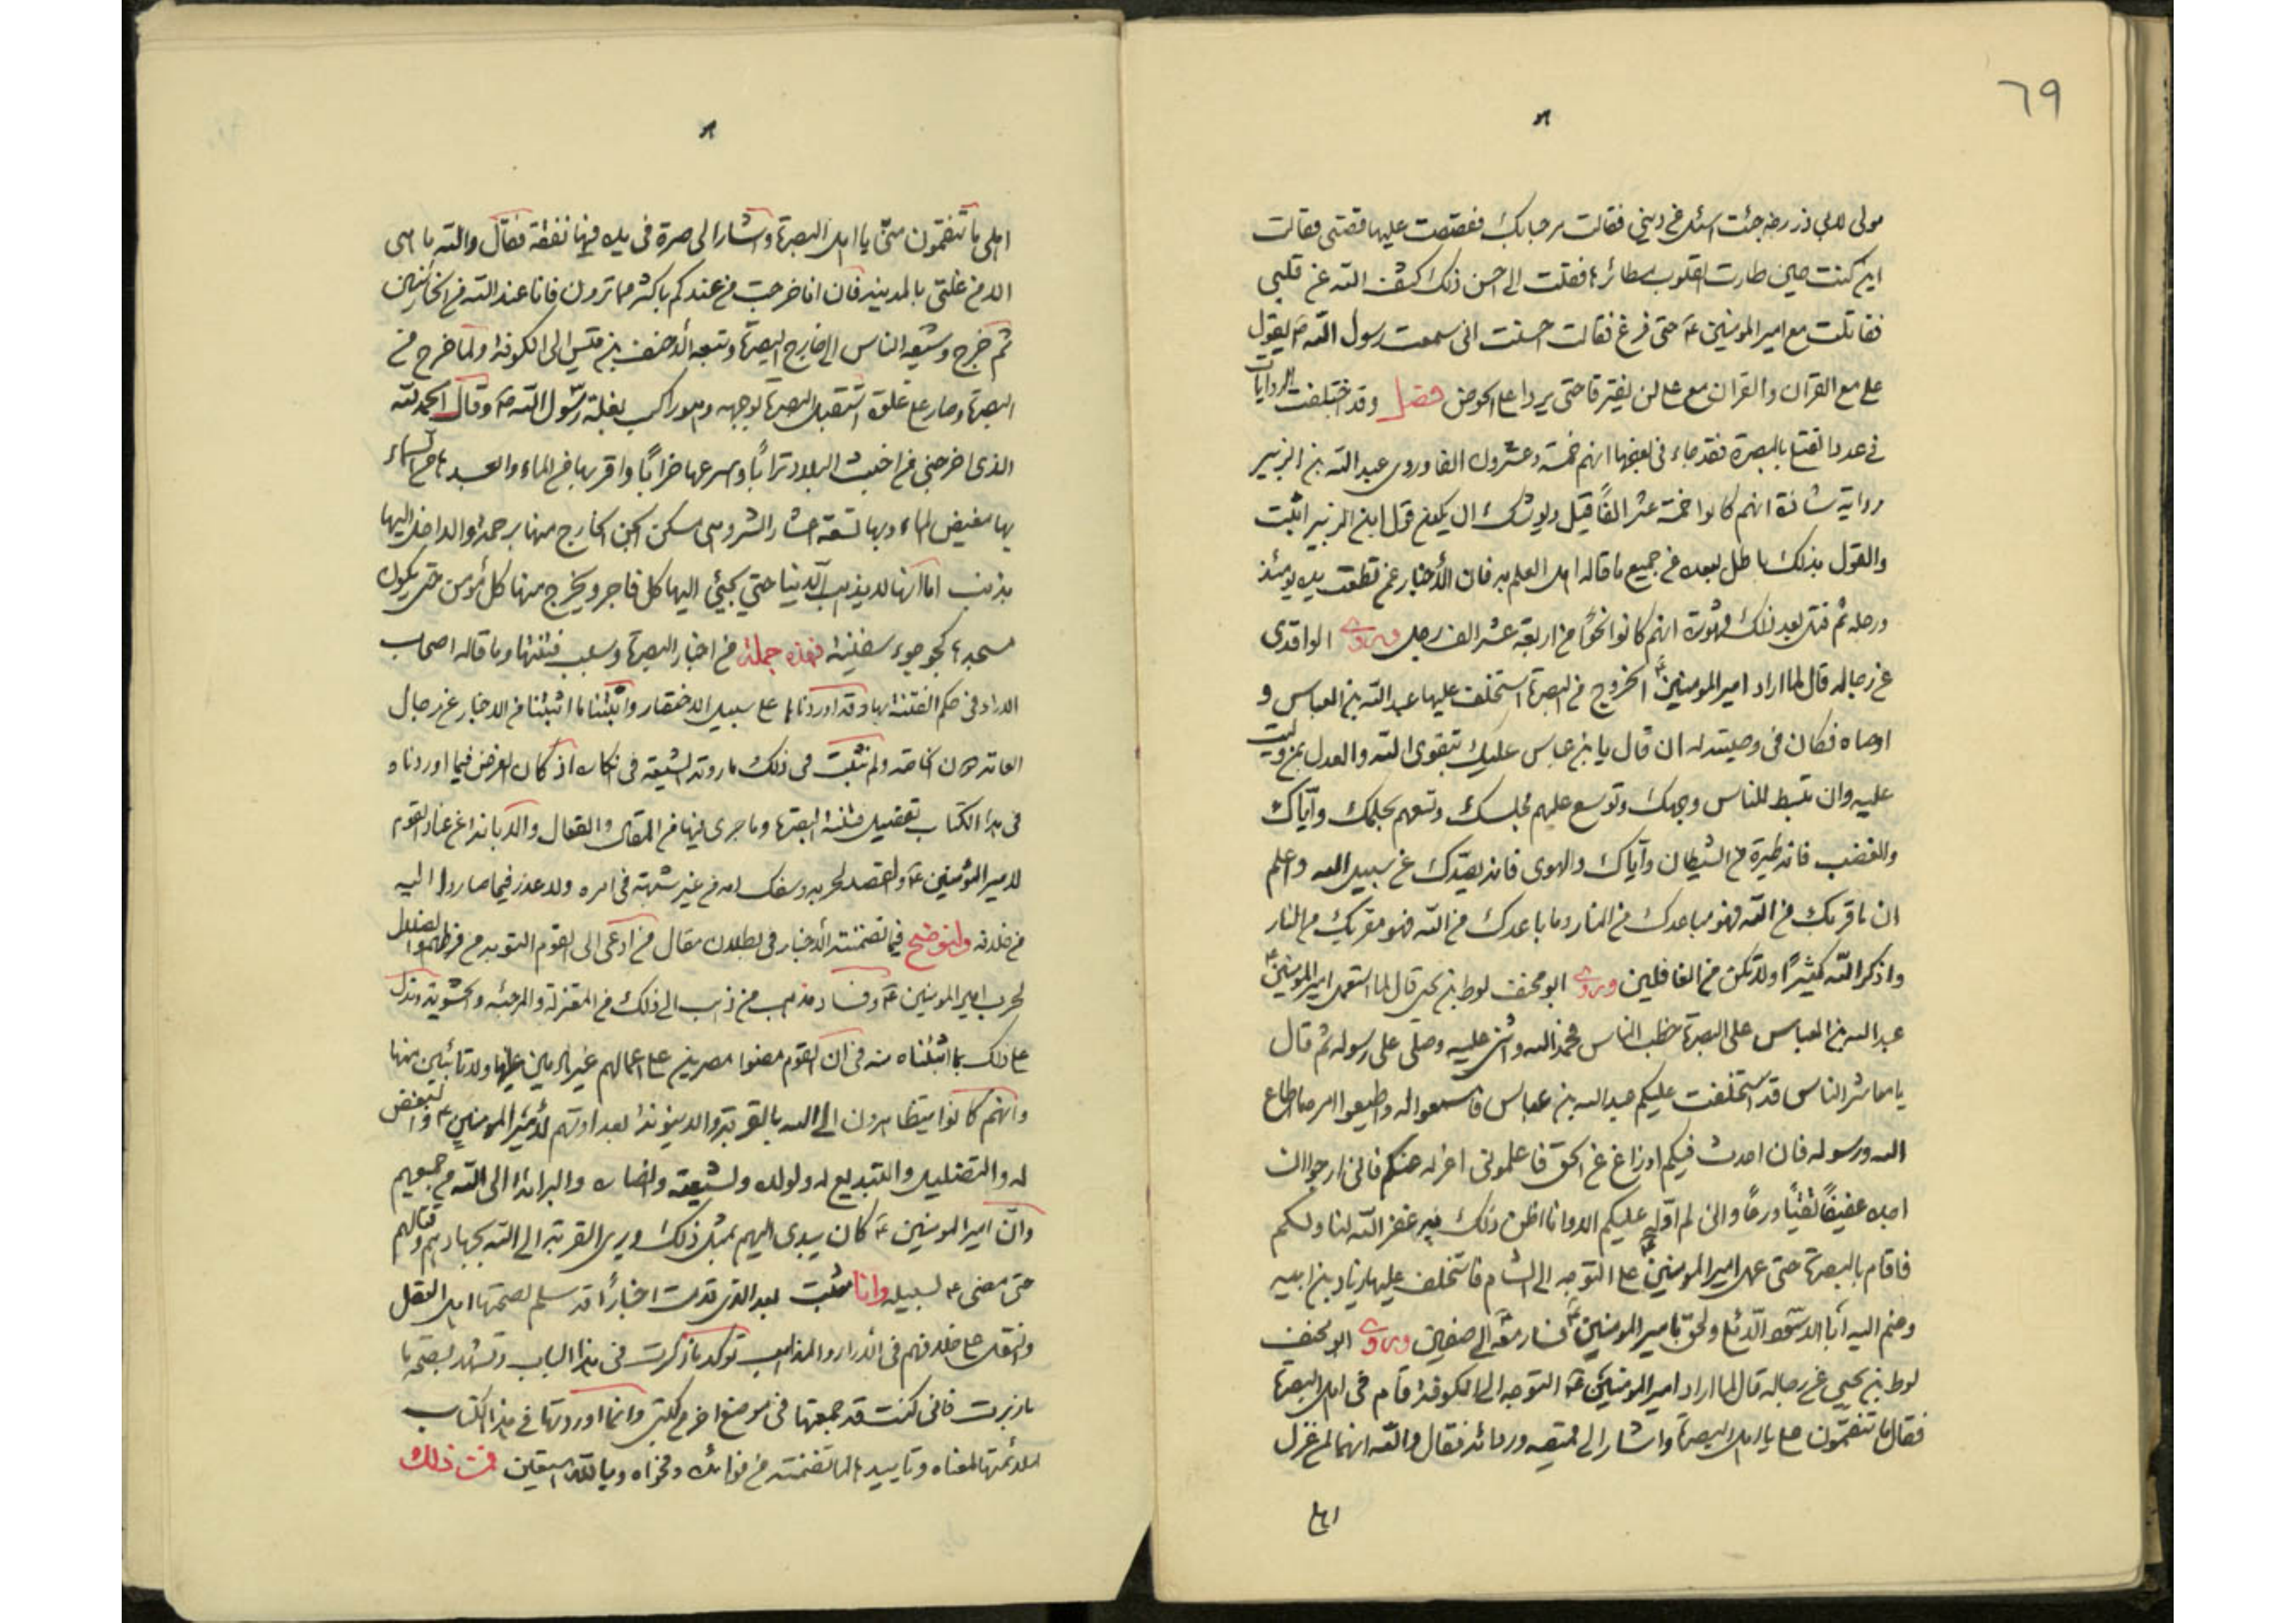 ٦٩
مولی لابی ذر رضه جئت اسئل عن دینی فقالت مرحبا بک فقصصت علیها قصتی فقالت
این کنت حین طارت القلوب مطائرها فقلت الی احسن ذلک کشف الله عن قلبی
فقاتلت مع امیر المومنین ع حتی فرغ فقالت احسنت انی سمعت رسول الله ص یقول
علی مع القرآن والقران مع علی لن یفترقا حتی یردا علی الحوض فصل وقد اختلفت الروایات
فی عدد القتلی بالبصرة فقد جاء فی بعضها انهم خمسة وعشرون الفا وروی عبد الله بن الزبیر
روایة شاذة انهم کانوا خمسة عشر الفًا قیل ویوشک ان یکون قول ابن الزبیر اثبت
والقول بذلک باطل لبعده فی جمیع ما قاله اهل العلم به فان الأخبار عن قطعت یده یومئذ
ورجله ثم قتل بعد ذلک مشهورة انهم کانوا نحوًا من اربعة عشر الف رجل وروی الواقدی
عن رجاله قال لما اراد امیر المومنین ع الخروج من البصرة استخلف علیها عبد الله بن العباس و
اوصاه فکان فی وصیته له ان قال یا بن عباس علیک بتقوی الله والعدل بمن ولیت
علیه وان تبسط للناس وجهک وتوسع علیهم مجلسک وتسعهم بحلمک وایاک
والغضب فانه طیرة من الشیطان وایاک والهوی فانه یصدک عن سبیل الله واعلم
ان ما قربک من الله فهو مباعدک من النار وما باعدک من الله فهو مقربک من النار
واذکر الله کثیرًا ولا تکن من الغافلین وروی ابو مخنف لوط بن یحیی قال لما استعمل امیر المومنین ع
عبد الله بن العباس علی البصرة خطب الناس فحمد الله واثنی علیه وصلی علی رسوله ثم قال
یا معاشر الناس قد استخلفت علیکم عبد الله بن عباس فاسمعوا له واطیعوا امره ما اطاع
الله ورسوله فان احدث فیکم او زاغ عن الحق فاعلمونی اعزله عنکم فانی ارجوا ان
اجده عفیفًا تقیًا ورعًا وانی لم اوله علیکم الا وانا اظن ذلک به غفر الله لنا ولکم
فاقام بالبصرة حتی عهد امیر المومنین ع علی التوجه الی الشام فاستخلف علیها زیاد بن ابیه
وضم الیه أبا الاسود الدئلی ولحق بامیر المومنین ع فسار معه الی صفین وروی ابو مخنف
لوط بن یحیی عن رجاله قال لما اراد امیر المومنین ع التوجه الی الکوفة قام فی اهل البصرة
فقال ما تنقمون علی یا اهل البصرة واشار الی قمیصه وردائه فقال والله انهما لمن غزل
اهلی
اهلی ما تنقمون منی یا اهل البصرة واشار الی صرة فی یده فیها نفقته فقال والله ما هی
الا من غلتی بالمدینه فان انا خرجت من عندکم باکثر مما ترون فانا عند الله من الخائنین
ثم خرج وشیعه الناس الی خارج البصرة وتبعه الأحنف بن قیس الی الکوفة ولما خرج من
البصرة وصار علی غلوة استقبل البصرة بوجهه وهو راکب بغلة رسول الله ص وقال الحمد لله
الذی اخرجنی من اخبث البلاد ترابًا واسرعها خرابًا واقربها من الماء وابعدها من السماء
بها مغیض الماء وبها تسعة اعشار الشر وهی مسکن الجن الخارج منها برحمة والداخل الیها
بذنب اما انها لا یذهب الدنیا حتی یجیئ الیها کل فاجر ویخرج منها کل مؤمن حتی یکون
مسجدها کجوجوء سفینة فهذه جملة من اخبار البصرة وسبب فتنتها وما قاله اصحاب
الاراء فی حکم الفتنة بها وقد اوردناها علی سبیل الاختصار واثبتنا ما اثبتنا من الاخبار عن رجال
العامة دون الخاصة ولم نثبت فی ذلک ما روته الشیعة فی انکاره اذ کان الغرض فیما اوردناه
فی هذا الکتاب تفصیل فتنة البصرة وما جری فیها من المقال والفعال والابانة عن عناد القوم
لامیر المؤمنین ع والقصد لحربه وسفک دمه من غیر شبهة فی امره ولا عذر فیما صاروا الیه
من خلافه ولنوضح فیما تضمنته الأخبار فی بطلان مقال من ادعی الی القوم التوبة من فرطهم الضلال
لحرب امیر المومنین ع وفساد مذهب من ذهب الی ذلک من المعتزلة والمرجئه والحشویة وندل
علی ذلک بما اثبتناه منه فی ان القوم مضوا مصرین علی اعمالهم غیر نادمین علیها ولا تائبین منها
وانهم کانوا یتظاهرون الی الله بالقربة والدینونة بعداوتهم لأمیر المومنین ع والبغض
له والتضلیل والتبدیع له ولولده ولشیعته وانصاره والبرائة الی الله من جمیعهم
وان امیر المومنین ع کان یبدی الیهم بمثل ذلک ویری القربة الی الله بجهادهم وقتالهم
حتی مضی ع لسبیله وانا مثبت بعد الذی قدمت اخبارًا قد سلم لصحتها اهل النقل
والنقل علی خلافهم فی الأراء والمذاهب توکد ما ذکرت فی هذا الباب وتشهد بصحة ما
ما زبرت فانی کنت قد جمعتها فی موضع اخر من کتبی وانما اوردتها فی هذا الکتاب
لملائمتها لمعناه وتاییدها لما تضمنته من فوائده وفحواه وبالله استعین فمن ذلک